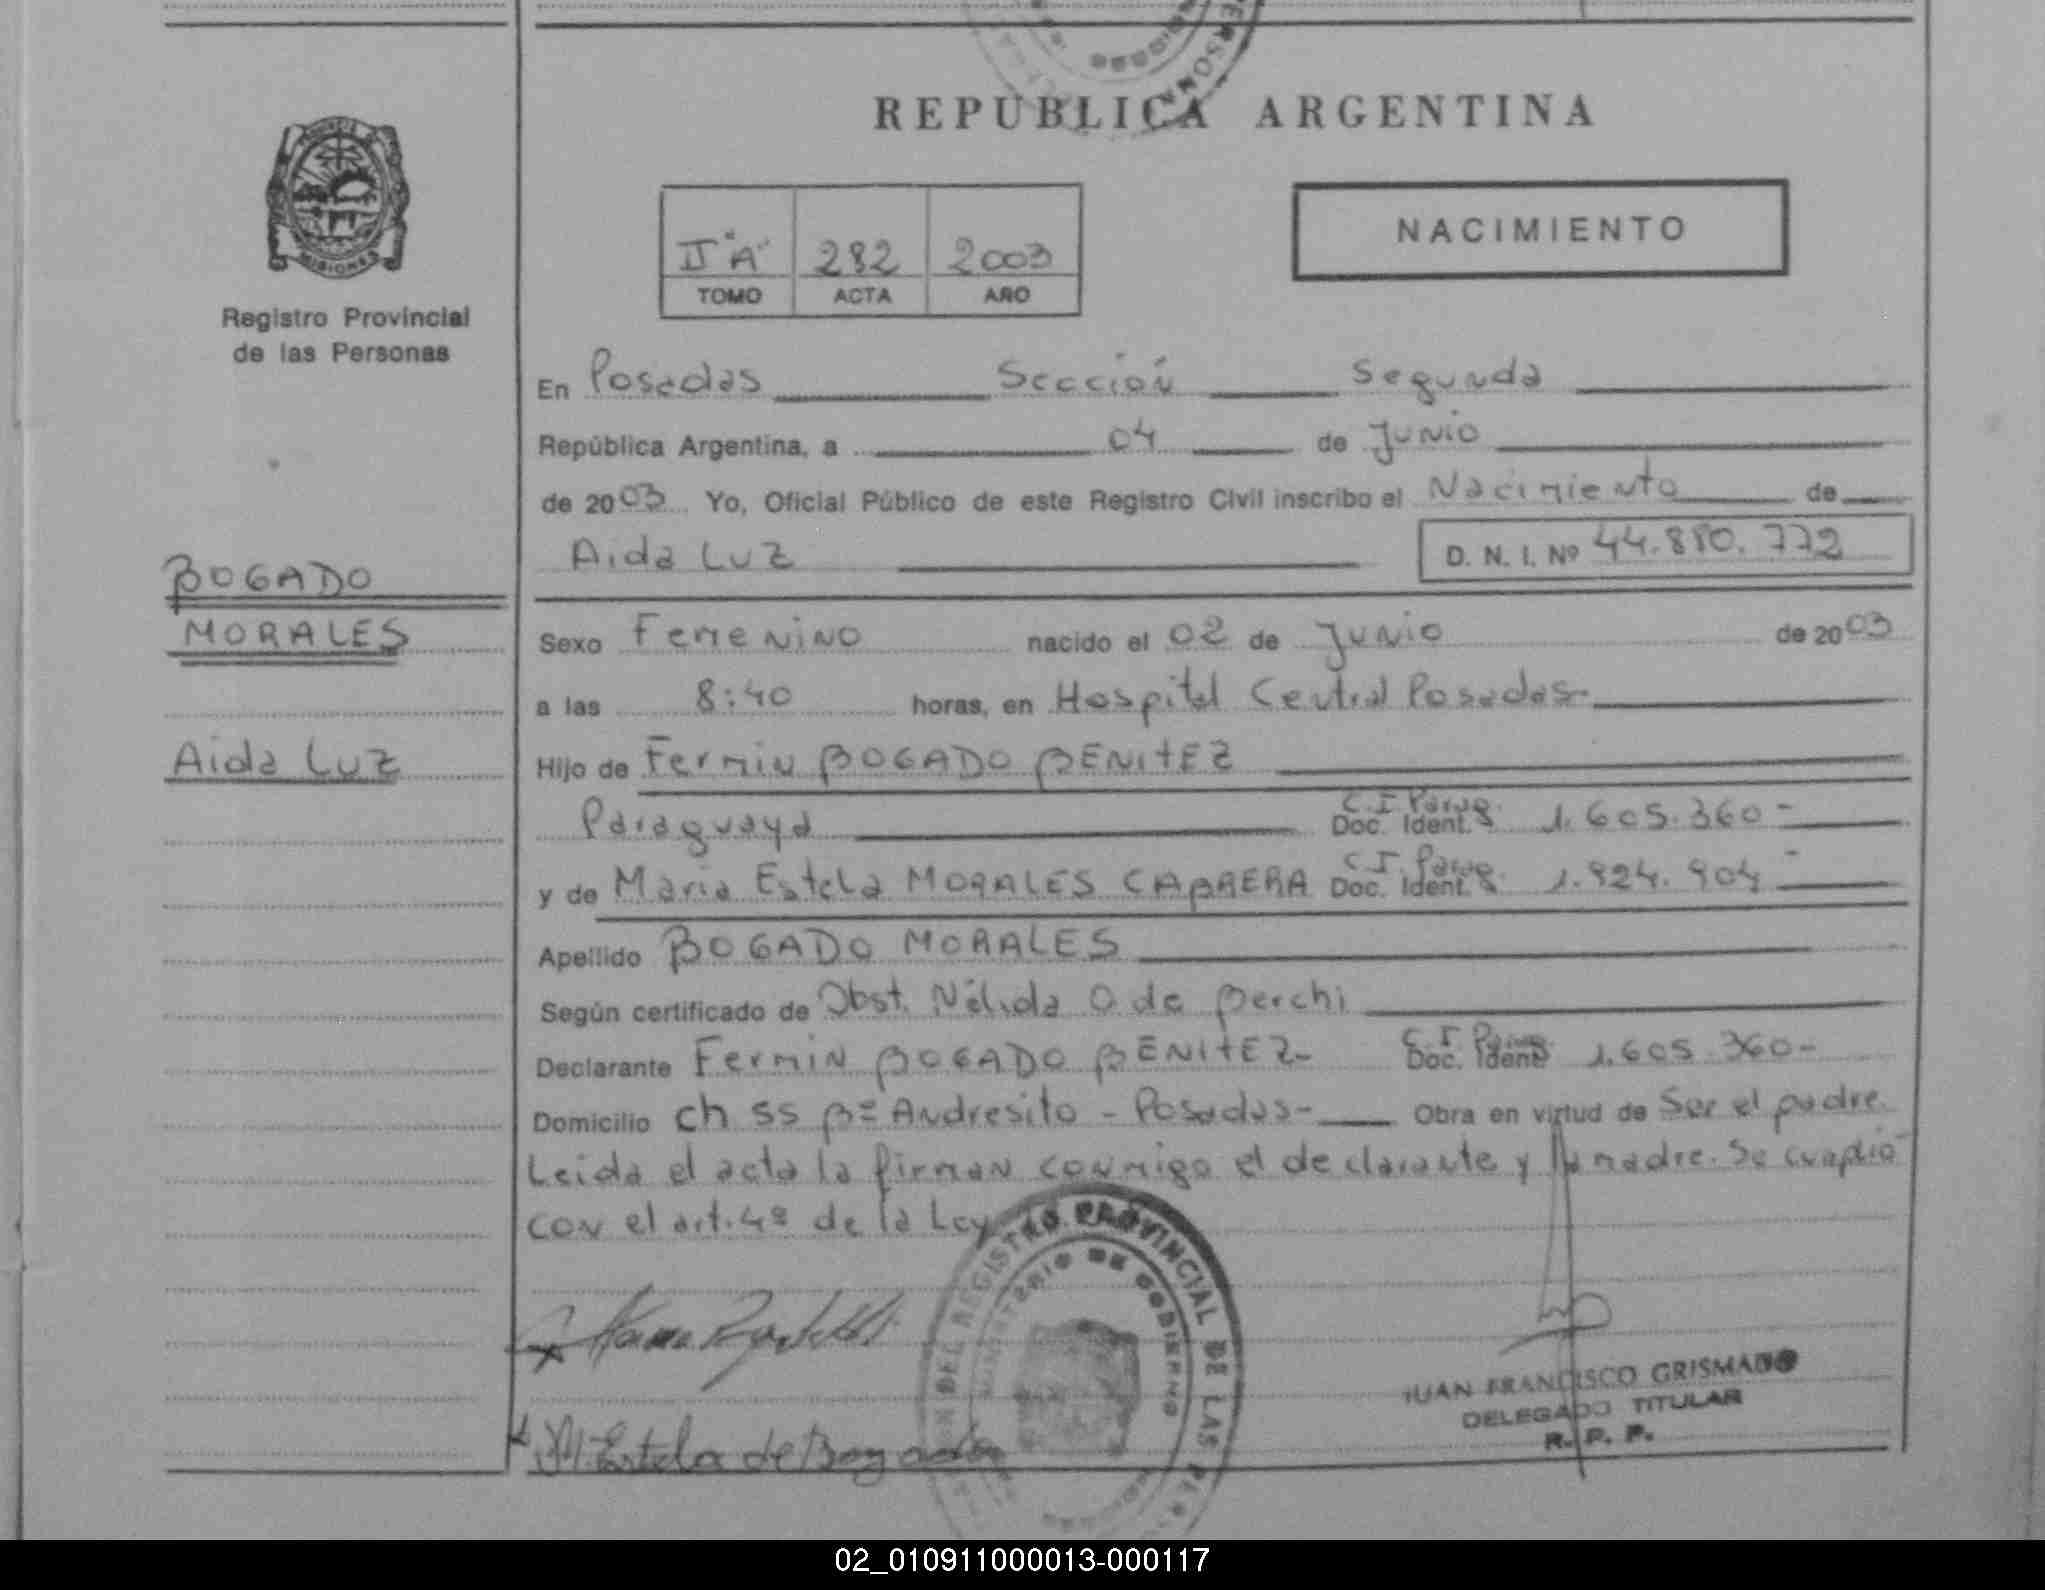 REPUBLICA ARGENTINA
MISIONES
Registro Provincial
de las Personas
II "A" 282 2003
TOMO ACTA AÑO
NACIMIENTO
En Posadas Sección Segunda
República Argentina, a 04 de Junio
de 2003 Yo, Oficial Público de este Registro Civil inscribo el Nacimiento de
Aida Luz D. N. I. Nº 44.880.772
BOGADO
MORALES
Aida Luz
Sexo Femenino nacido el 02 de Junio de 2003
a las 8:40 horas, en Hospital Central Posadas-
Hijo de Fermin BOGADO BENITEZ
Paraguaya C.I Parag. Doc. Ident. 1.605.360-
y de Maria Estela MORALES CABRERA C I Parag. Doc. Ident. 1.924.904-
Apellido BOGADO MORALES
Según certificado de Obst. Nélida O. de Berchi
Declarante Fermin BOGADO BENITEZ- C.I Parag Doc. Ident 1.605.360-
Domicilio Ch 55 Bº Andresito - Posadas- Obra en virtud de Ser el padre.
Leida el acta la firman conmigo el declarante y la madre. Se cumplió
con el art. 4º de la Ley
REGISTRO PROVINCIAL DE LAS PER
MINISTERIO DE GOBIERNO
M. Estela de Bogado
JUAN FRANCISCO GRISMADO
DELEGADO TITULAR
R. P. P.
02_010911000013-000117